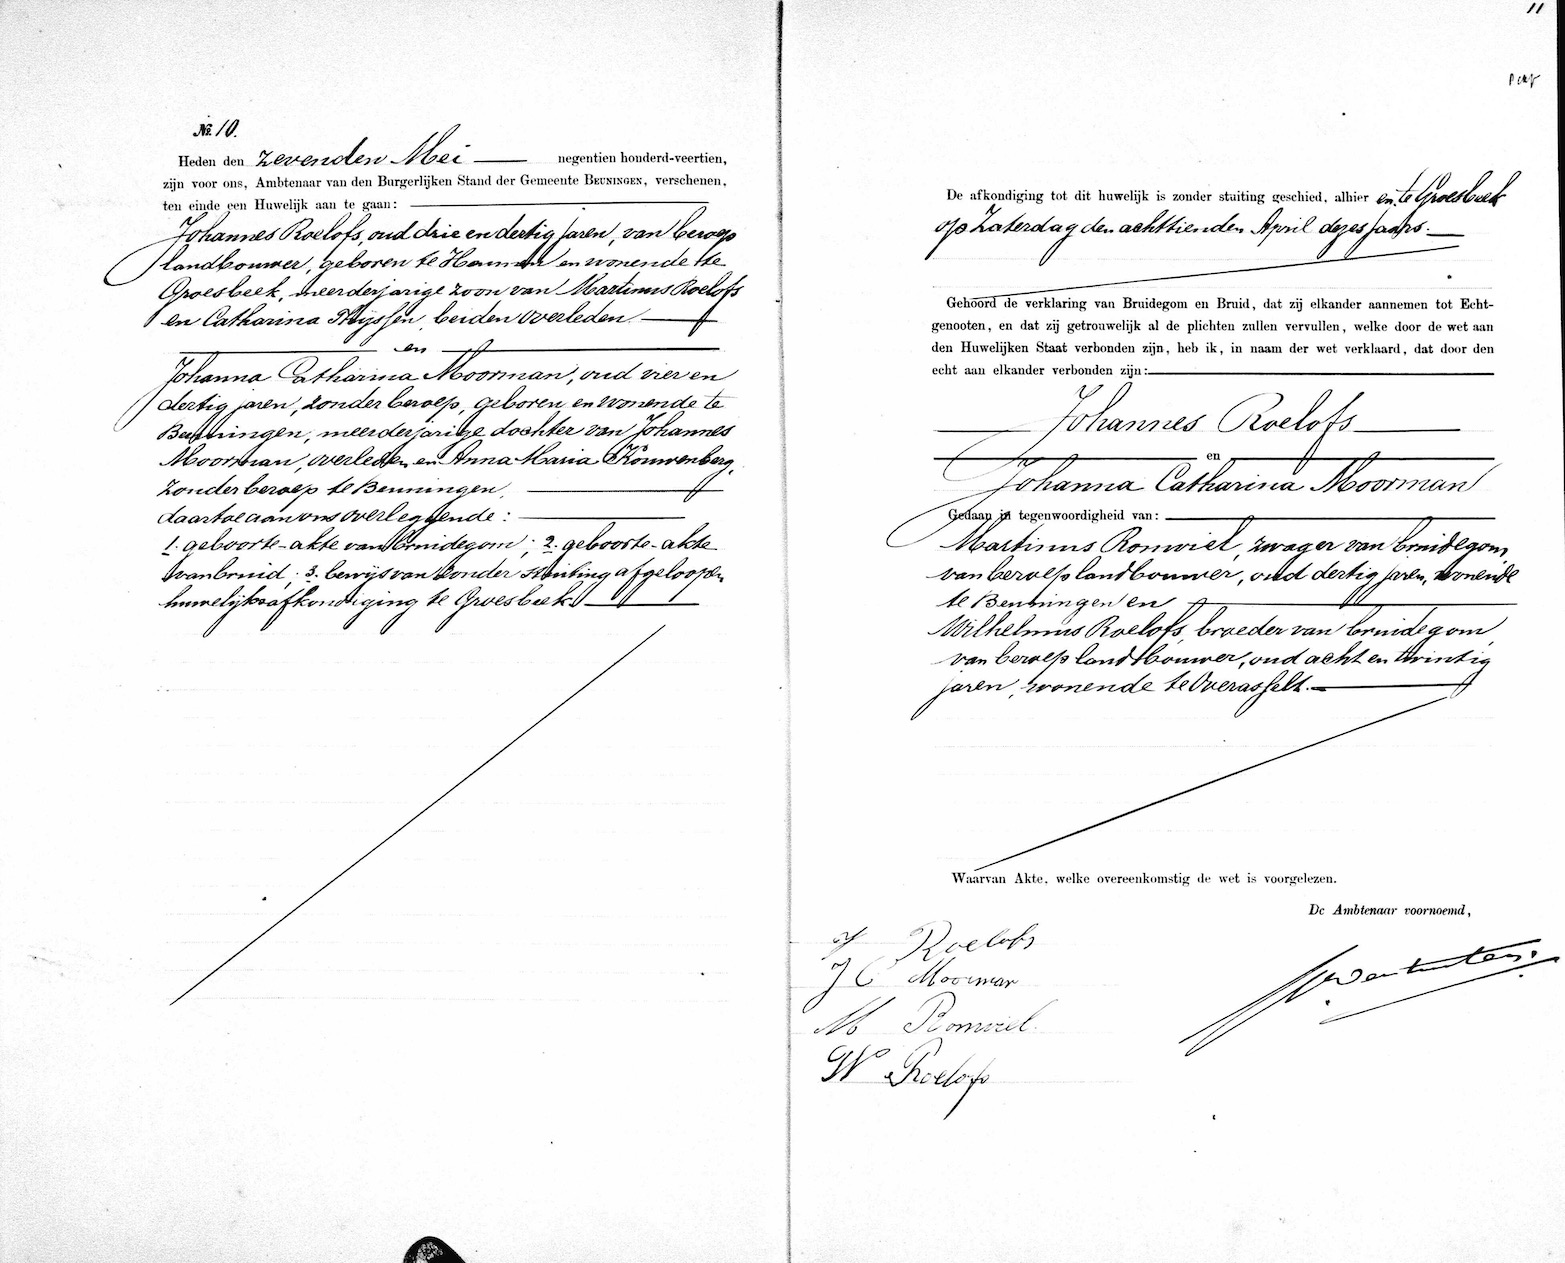 No. 10.
Heden den zevenden Mei negentien honderd-veertien,
zijn voor ons, Ambtenaar van den Burgerlijken Stand der Gemeente BEUNINGEN, verschenen,
ten einde een Huwelijk aan te gaan:
Johannes Roelofs, oud drie en dertig jaren, van beroep
landbouwer, geboren te Heumen en wonende te
Groesbeek, meerderjarige zoon van Martinus Roelofs
en Catharina Thijssen, beiden overleden
en
Johanna Catharina Moorman, oud vier en
dertig jaren, zonder beroep, geboren en wonende te
Beuningen, meerderjarige dochter van Johannes
Moorman, overleden en Anna Maria Kouwenberg,
zonder beroep te Beuningen,
daartoe aan ons overleggende:
1. geboorte-akte van bruidegom; 2. geboorte-akte
van bruid; 3. bewijs van zonder stuiting afgeloopen
huwelijksafkondiging te Groesbeek.
11
De afkondiging tot dit huwelijk is zonder stuiting geschied, alhier en te Groesbeek
op Zaterdag den achttienden April dezes jaars.
Gehoord de verklaring van Bruidegom en Bruid, dat zij elkander aannemen tot Echt-
genooten, en dat zij getrouwelijk al de plichten zullen vervullen, welke door de wet aan
den Huwelijken Staat verbonden zijn, heb ik, in naam der wet verklaard, dat door den
echt aan elkander verbonden zijn:
Johannes Roelofs
en
Johanna Catharina Moorman
Gedaan in tegenwoordigheid van:
Martinus Romviel, zwager van bruidegom,
van beroep landbouwer, oud dertig jaren, wonende
te Beuningen en
Wilhelmus Roelofs, broeder van bruidegom,
van beroep landbouwer, oud acht en twintig
jaren, wonende te Overasselt.
Waarvan Akte, welke overeenkomstig de wet is voorgelezen.
De Ambtenaar voornoemd,
J Roelofs
J C Moorman
M Romviel
W Roelofs